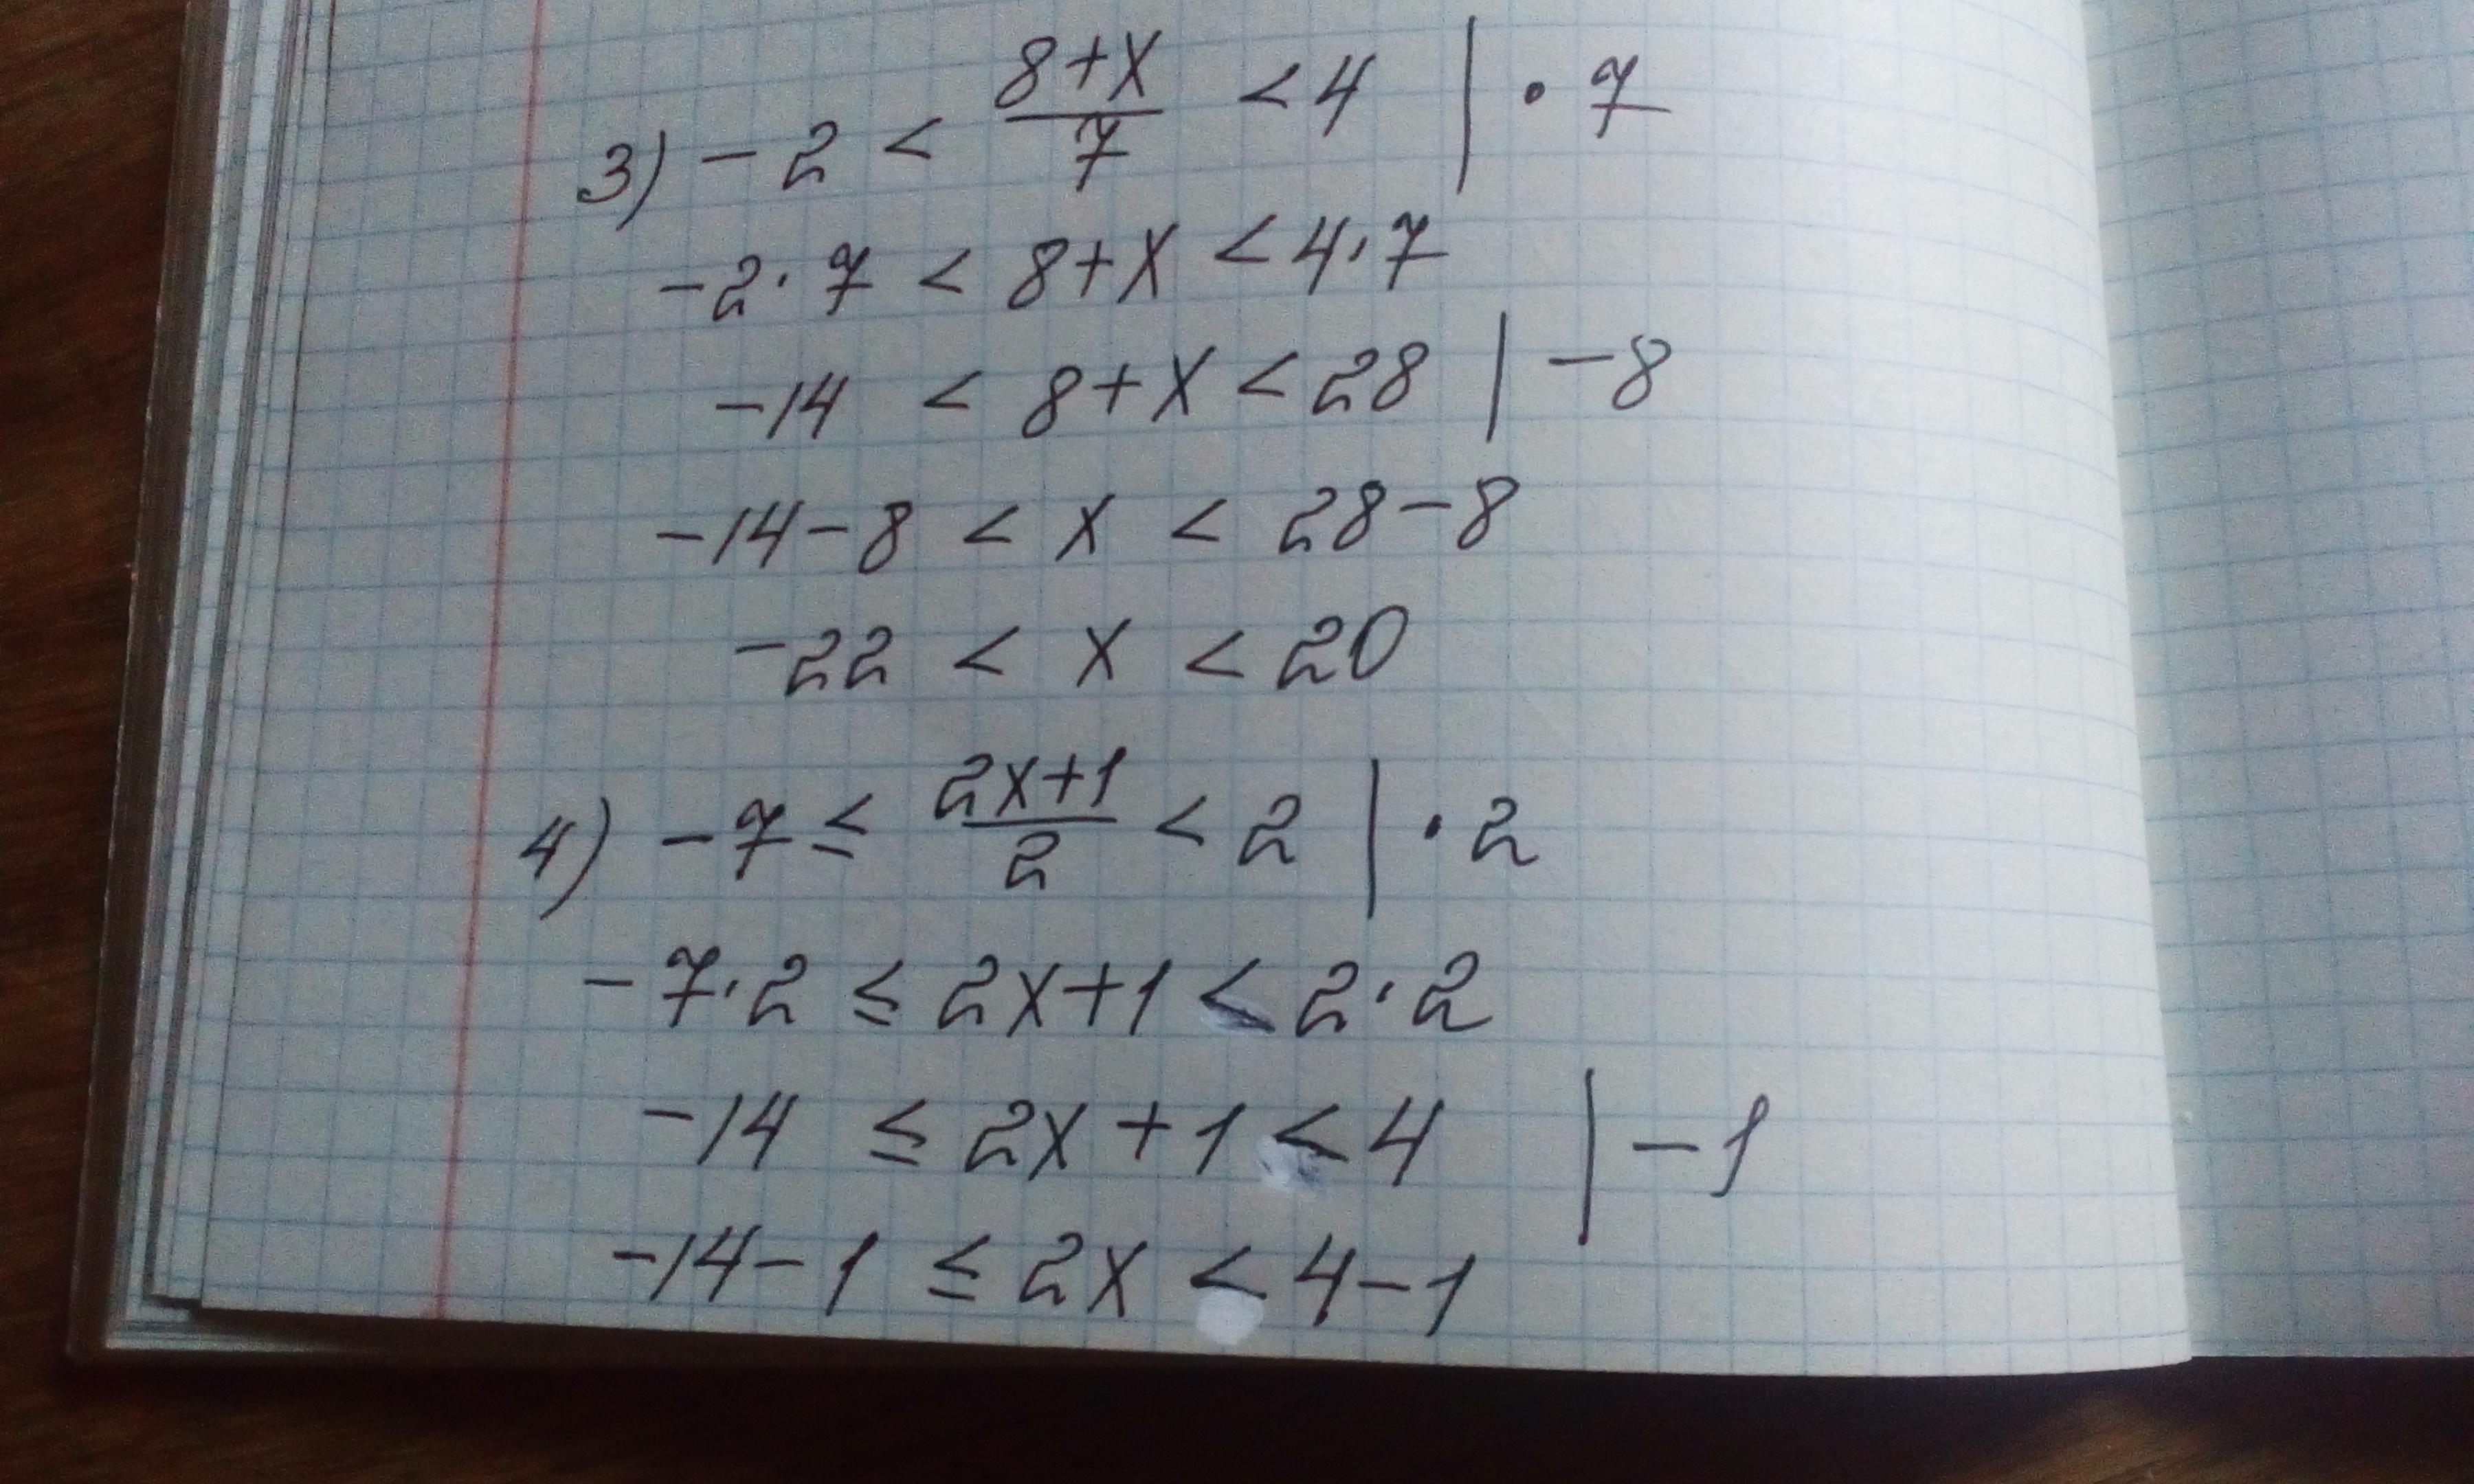 3) -2 < (8+x)/7 < 4 | · 7
-2 · 7 < 8+x < 4 · 7
-14 < 8+x < 28 | -8
-14-8 < x < 28-8
-22 < x < 20
4) -7 ≤ (2x+1)/2 < 2 | · 2
-7 · 2 ≤ 2x+1 < 2 · 2
-14 ≤ 2x+1 < 4 | -1
-14-1 ≤ 2x < 4-1